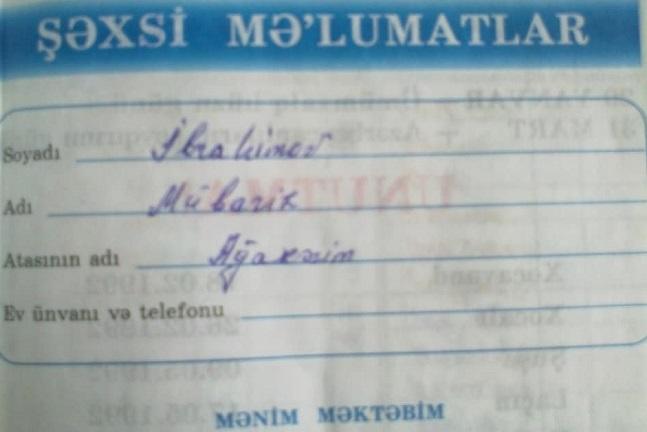 ŞƏXSİ MƏ'LUMATLAR
Soyadı İbrahimov
Adı Mübariz
Atasının adı Ağakərim
Ev ünvanı və telefonu
MƏNİM MƏKTƏBİM